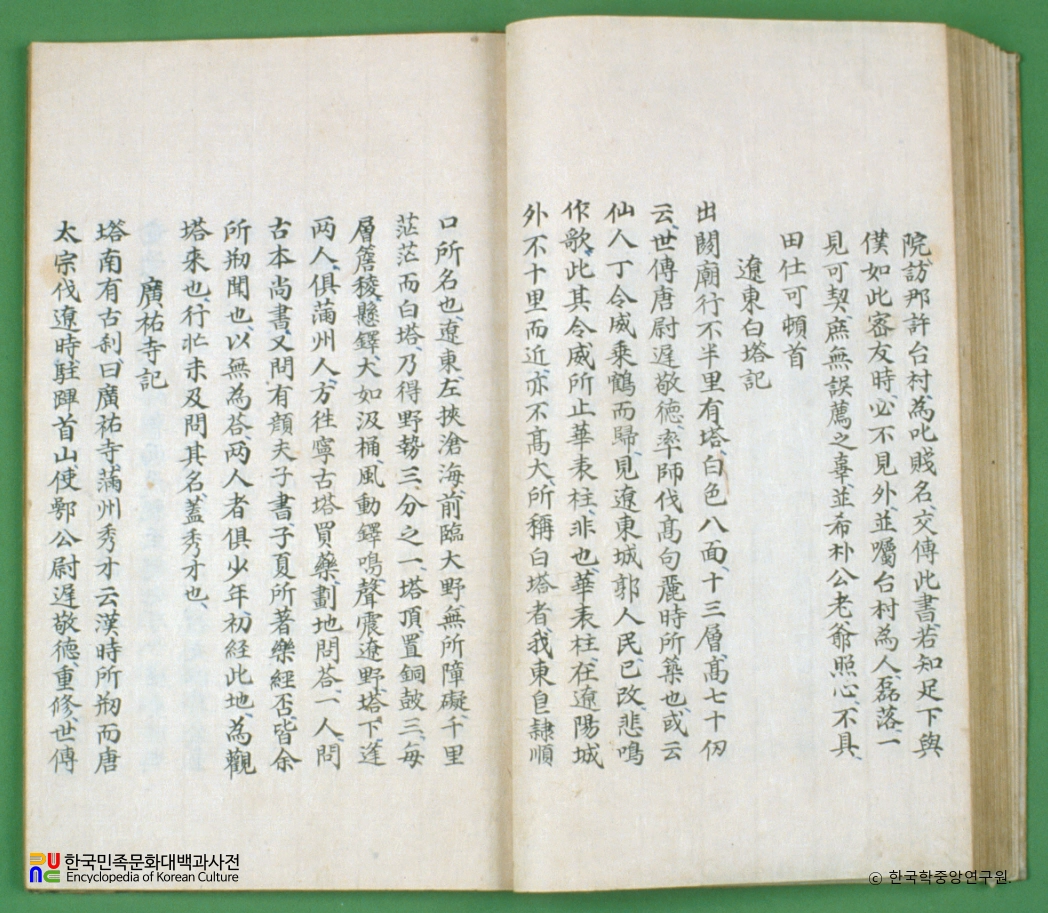 院訪那許台村、為叱賤名、交傳此書、若知足下、與
僕如此審友時、必不見外、並囑台村為人、磊落、一
見可契、庶無誤薦之辜、並希朴公老爺照心、不具、
田仕可頓首
遼東白塔記
出関廟行不半里有塔、白色八面、十三層、髙七十仞
云、世傳唐尉遲敬徳、率師伐髙句麗時所築也、或云
仙人丁令威乘鶴而歸、見遼東城郭人民已改、悲鳴
作歌、此其令威所止華表柱、非也、華表柱、在遼陽城
外不十里而近、亦不髙大、所稱白塔者、我東皂隷順
口所名也、遼東、左挾滄海、前臨大野、無所障礙、千里
茫茫而白塔、乃得野勢三、分之一、塔頂、置銅皷三、每
層簷稜、懸鐸、大如汲桶、風動鐸鳴、聲震遼野、塔下、逢
两人、俱滿州人、方徃寧古塔買藥、劃地問荅、一人、問
古本尚書、又問、有顔夫子書、子夏所著樂經否、皆余
所刱聞也、以無為荅、两人者俱少年、初経此地、為觀
塔来也、行忙未及問其名、蓋秀才也、
廣祐寺記
塔南有古刹、曰廣祐寺、滿州秀才云、漢時所刱而唐
太宗伐遼時、駐蹕首山、使鄂公尉遲敬徳、重修、世傳
한국민족문화대백과사전
Encyclopedia of Korean Culture
© 한국학중앙연구원.